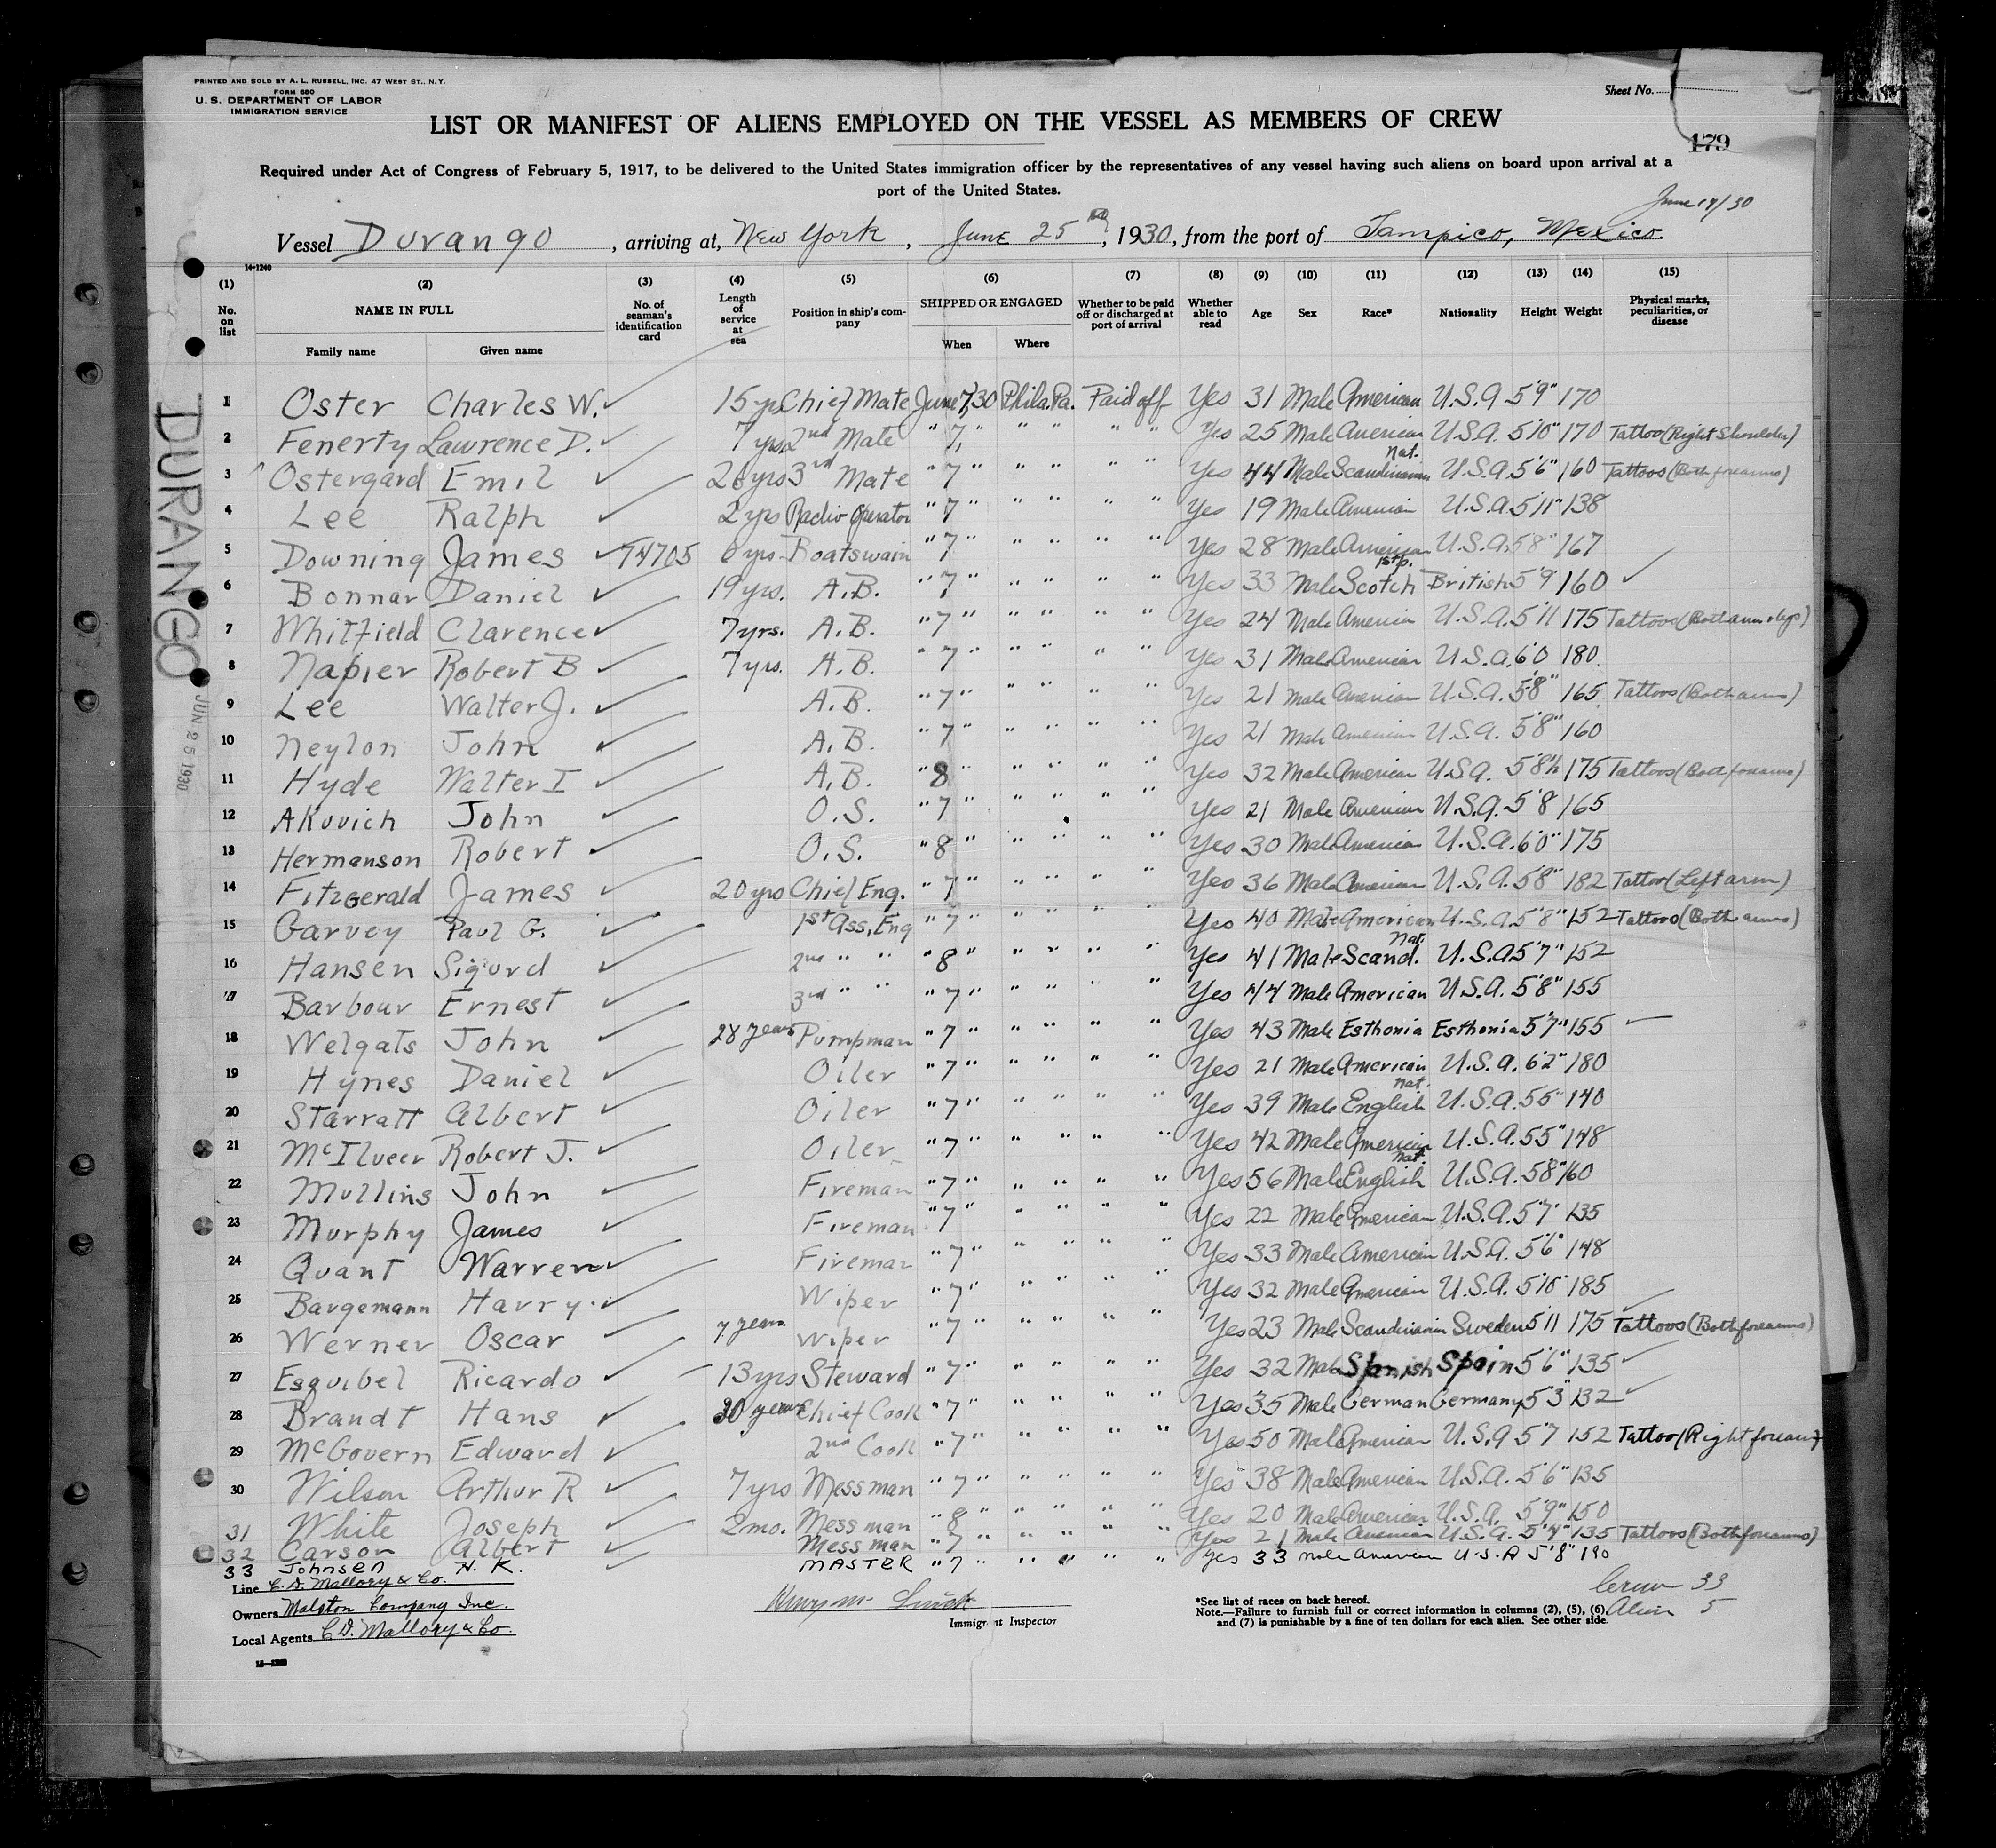 PRINTED AND SOLD BY A. L. RUSSELL, INC. 47 WEST ST., N.Y.
FORM 680
U. S. DEPARTMENT OF LABOR
IMMIGRATION SERVICE
Sheet No.
LIST OR MANIFEST OF ALIENS EMPLOYED ON THE VESSEL AS MEMBERS OF CREW
179
Required under Act of Congress of February 5, 1917, to be delivered to the United States immigration officer by the representatives of any vessel having such aliens on board upon arrival at a
port of the United States.
June 17/30
Vessel Durango, arriving at, New York, June 25th, 1930, from the port of Tampico, Mexico
14-1240
(1) (2) (3) (4) (5) (6) (7) (8) (9) (10) (11) (12) (13) (14) (15)
No. on list NAME IN FULL Family name Given name No. of seaman's identification card Length of service at sea Position in ship's company SHIPPED OR ENGAGED When Where Whether to be paid off or discharged at port of arrival Whether able to read Age Sex Race* Nationality Height Weight Physical marks, peculiarities, or disease
1 Oster Charles W. 15 yrs Chief Mate June 7, 30 Phila. Pa. Paid off Yes 31 Male American U.S.A 5'9" 170
2 Fenerty Lawrence D. 7 yrs 2nd Mate " 7, " " " " " Yes 25 Male American U.S.A. 5'10" 170 Tattoo (Right Shoulder)
3 Ostergard Emil 26 yrs 3rd Mate " 7 " " " " " Yes 44 Male Scandinavian Nat. U.S.A. 5'6" 160 Tattoos (Both forearms)
4 Lee Ralph 2 yrs Radio Operator " 7 " " " " " Yes 19 Male American U.S.A. 5'11" 138
5 Downing James 74705 6 yrs. Boatswain " 7 " " " " " Yes 28 Male American U.S.A. 5'8" 167
6 Bonnar Daniel 19 yrs. A.B. " 7 " " " " " Yes 33 Male Scotch 1st p. British 5'9 160
7 Whitfield Clarence 7 yrs. A.B. " 7 " " " " " Yes 24 Male American U.S.A. 5'11 175 Tattoos (Both arms & legs)
8 Napier Robert B 7 yrs. A.B. " 7 " " " " " Yes 31 Male American U.S.A. 6'0 180
9 Lee Walter J. A.B. " 7 " " " " " Yes 21 Male American U.S.A. 5'8" 165 Tattoos (Both arms)
10 Neylon John A.B. " 7 " " " " " Yes 21 Male American U.S.A. 5'8" 160
11 Hyde Walter I A.B. " 8 " " " " " Yes 32 Male American U.S.A. 5'8½ 175 Tattoos (Both forearms)
12 Akovich John O.S. " 7 " " " " " Yes 21 Male American U.S.A. 5'8 165
13 Hermanson Robert O.S. " 8 " " " " " Yes 30 Male American U.S.A. 6'0" 175
14 Fitzgerald James 20 yrs Chief Eng. " 7 " " " " " Yes 36 Male American U.S.A. 5'8" 182 Tattoo (Left arm)
15 Garvey Paul G. 1st Ass, Eng " 7 " " " " " Yes 40 Male American U.S.A. 5'8" 152 Tattoos (Both arms)
16 Hansen Sigurd 2nd " " " 8 " " " " " Yes 41 Male Scand. Nat. U.S.A 5'7" 152
17 Barbour Ernest 3rd " " " 7 " " " " " Yes 44 Male American U.S.A. 5'8" 155
18 Welgats John 28 years Pumpman " 7 " " " " " Yes 43 Male Esthonia Esthonia 5'7" 155
19 Hynes Daniel Oiler " 7 " " " " " Yes 21 Male American U.S.A. 6'2" 180
20 Starratt Albert Oiler " 7 " " " " " Yes 39 Male English Nat. U.S.A. 5'5" 140
21 McIlveer Robert J. Oiler " 7 " " " " " Yes 42 Male American U.S.A. 5'5" 148
22 Mullins John Fireman " 7 " " " " " Yes 56 Male English Nat. U.S.A. 5'8" 160
23 Murphy James Fireman " 7 " " " " " Yes 22 Male American U.S.A. 5'7" 135
24 Quant Warren Fireman " 7 " " " " " Yes 33 Male American U.S.A. 5'6" 148
25 Bargemann Harry Wiper " 7 " " " " " Yes 32 Male American U.S.A. 5'10" 185
26 Werner Oscar 7 years Wiper " 7 " " " " " Yes 23 Male Scandinavian Sweden 5'11 175 Tattoos (Both forearms)
27 Esquibel Ricardo 13 yrs Steward " 7 " " " " " Yes 32 Male Spanish Spain 5'6" 135
28 Brandt Hans 20 years Chief Cook " 7 " " " " " Yes 35 Male German Germany 5'3" 132
29 McGovern Edward 2nd Cook " 7 " " " " " Yes 50 Male American U.S.A 5'7 152 Tattoo (Right forearm)
30 Wilson Arthur R 7 yrs Messman " 7 " " " " " Yes 38 Male American U.S.A. 5'6" 135
31 White Joseph 2 mo. Messman " 8 " " " " " Yes 20 Male American U.S.A. 5'9" 150
32 Carson Albert Messman " 7 " " " " " Yes 21 Male American U.S.A. 5'4" 135 Tattoos (Both forearms)
33 Johnsen H. K. MASTER " 7 " " " " " Yes 33 Male American U.S.A 5'8" 190
DURANGO
JUN 25 1930
Line C. D. Mallory & Co.
Owners Malston Company Inc.
Local Agents C.D. Mallory & Co.
Immigrant Inspector
*See list of races on back hereof.
Note.—Failure to furnish full or correct information in columns (2), (5), (6)
and (7) is punishable by a fine of ten dollars for each alien. See other side.
Crew 33
Alien 5